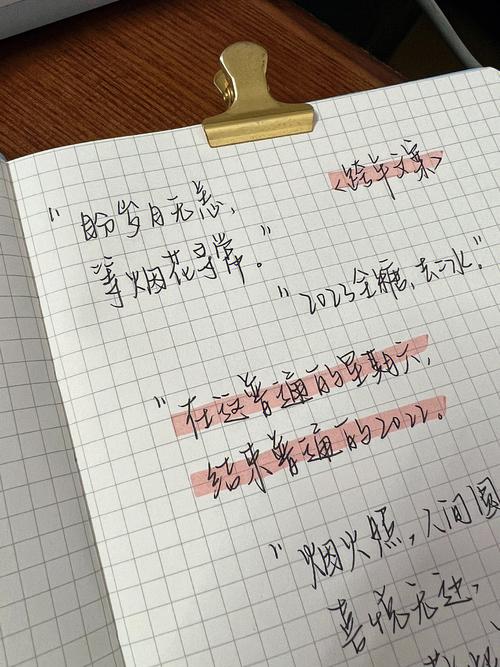 <跨年文案>
"盼岁月无恙,
等烟花寻常。"
"2023全糖,去冰."
"在这普通的星期六,
结束普通的2022。
"烟火照,人间圆
喜悦无边,